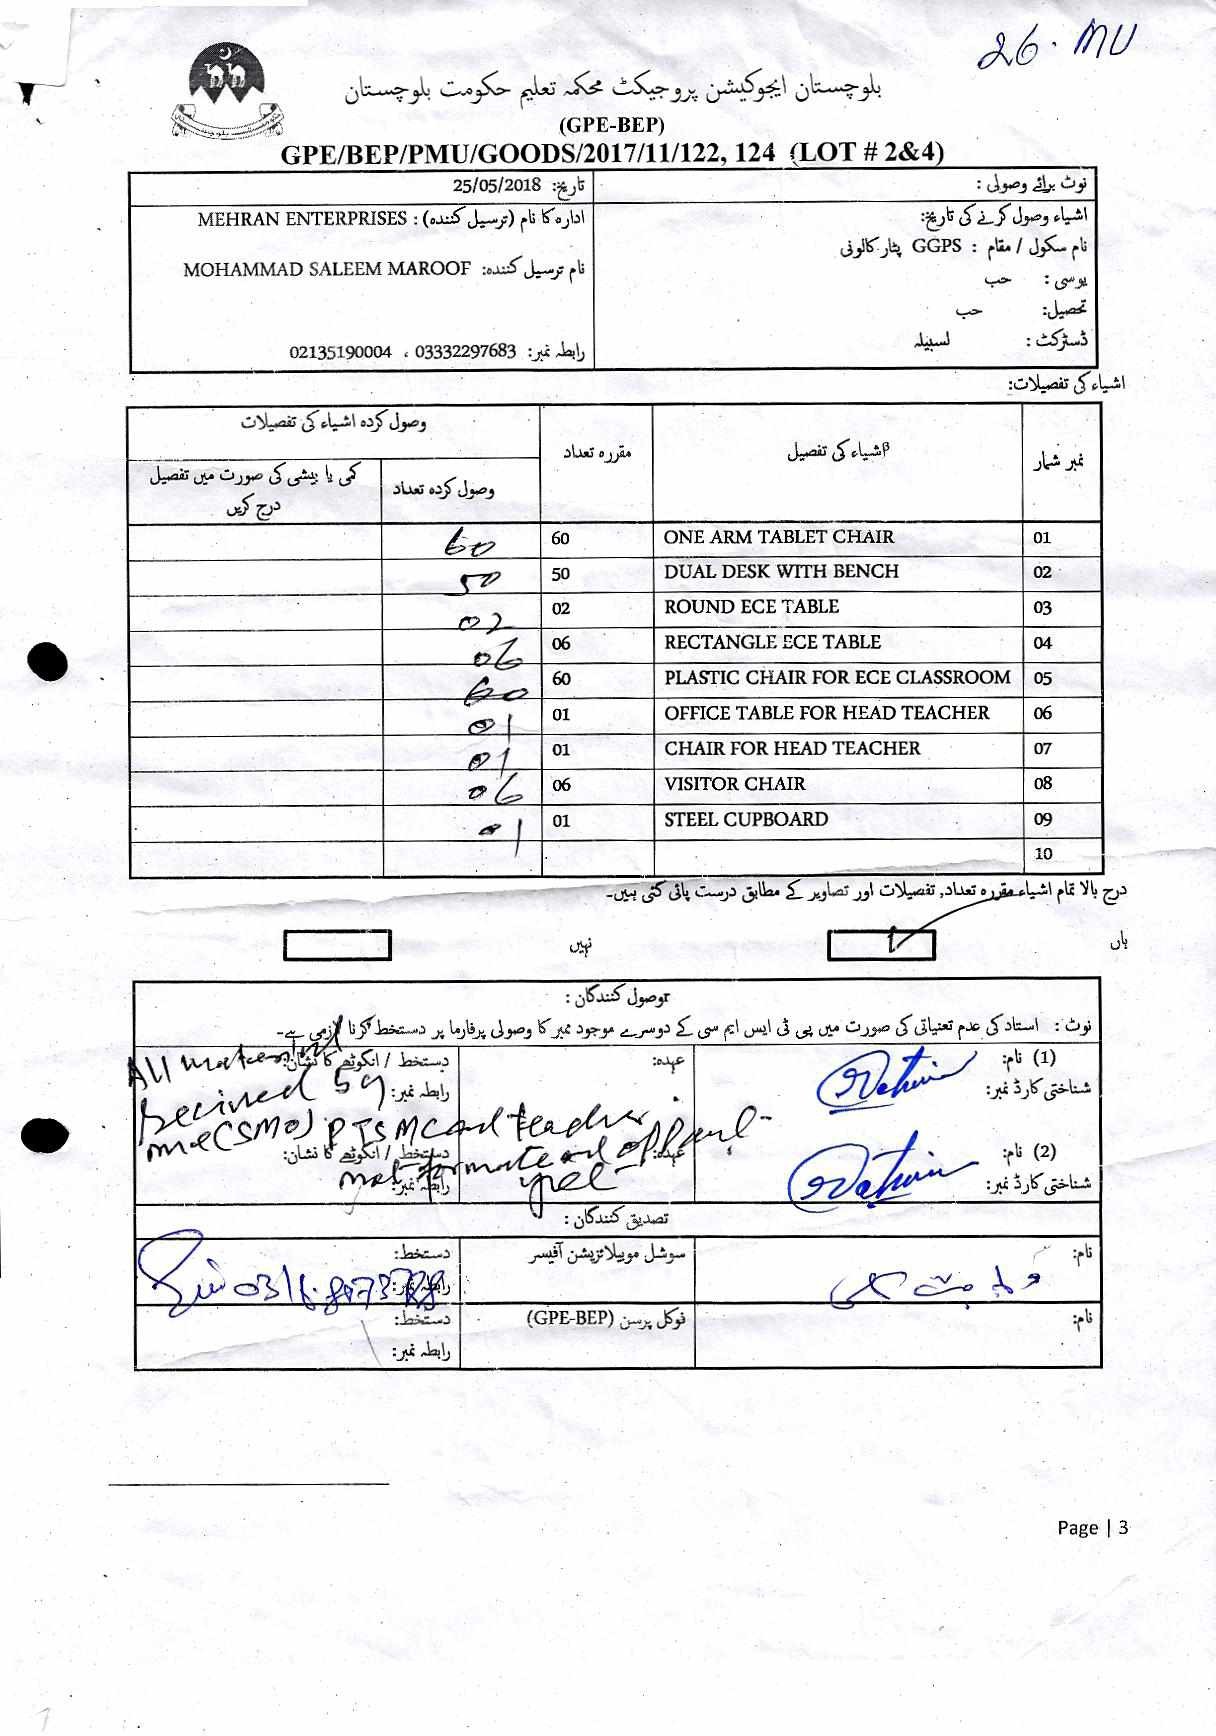 26. MU
بلوچستان ایجوکیشن پروجیکٹ محکمہ تعلیم حکومت بلوچستان
(GPE-BEP)
GPE/BEP/PMU/GOODS/2017/11/122, 124 (LOT # 2&4)
نوٹ برائے وصولی :
تاریخ: 25/05/2018
اشیاء وصول کرنے کی تاریخ:
ادارہ کا نام (ترسیل کنندہ) : MEHRAN ENTERPRISES
نام سکول / مقام : GGPS پٹار کالونی
نام ترسیل کنندہ: MOHAMMAD SALEEM MAROOF
یوسی : حب
تحصیل: حب
ڈسٹرکٹ : لسبیلہ
رابطہ نمبر: 03332297683 ، 02135190004
اشیاء کی تفصیلات:
نمبر شمار
اشیاء کی تفصیل
مقررہ تعداد
وصول کردہ اشیاء کی تفصیلات
وصول کردہ تعداد
کمی یا بیشی کی صورت میں تفصیل درج کریں
01 ONE ARM TABLET CHAIR 60 60
02 DUAL DESK WITH BENCH 50 50
03 ROUND ECE TABLE 02 02
04 RECTANGLE ECE TABLE 06 06
05 PLASTIC CHAIR FOR ECE CLASSROOM 60 60
06 OFFICE TABLE FOR HEAD TEACHER 01 01
07 CHAIR FOR HEAD TEACHER 01 01
08 VISITOR CHAIR 06 06
09 STEEL CUPBOARD 01 01
10
درج بالا تمام اشیاء مقررہ تعداد, تفصیلات اور تصاویر کے مطابق درست پائی گئی ہیں۔
ہاں
نہیں
وصول کنندگان :
نوٹ : استاد کی عدم تعیناتی کی صورت میں پی ٹی ایس ایم سی کے دوسرے موجود ممبر کا وصولی پرفارما پر دستخط کرنا لازمی ہے۔
(1) نام:
عہدہ:
دستخط / انگوٹھے کا نشان:
شناختی کارڈ نمبر:
رابطہ نمبر:
(2) نام:
عہدہ:
دستخط / انگوٹھے کا نشان:
شناختی کارڈ نمبر:
رابطہ نمبر:
All material
Recived by
me (SMO) PTSMC and teacher
تصدیق کنندگان :
نام:
سوشل موبیلائزیشن آفیسر
دستخط:
رابطہ نمبر:
نام:
فوکل پرسن (GPE-BEP)
دستخط:
رابطہ نمبر:
Page | 3